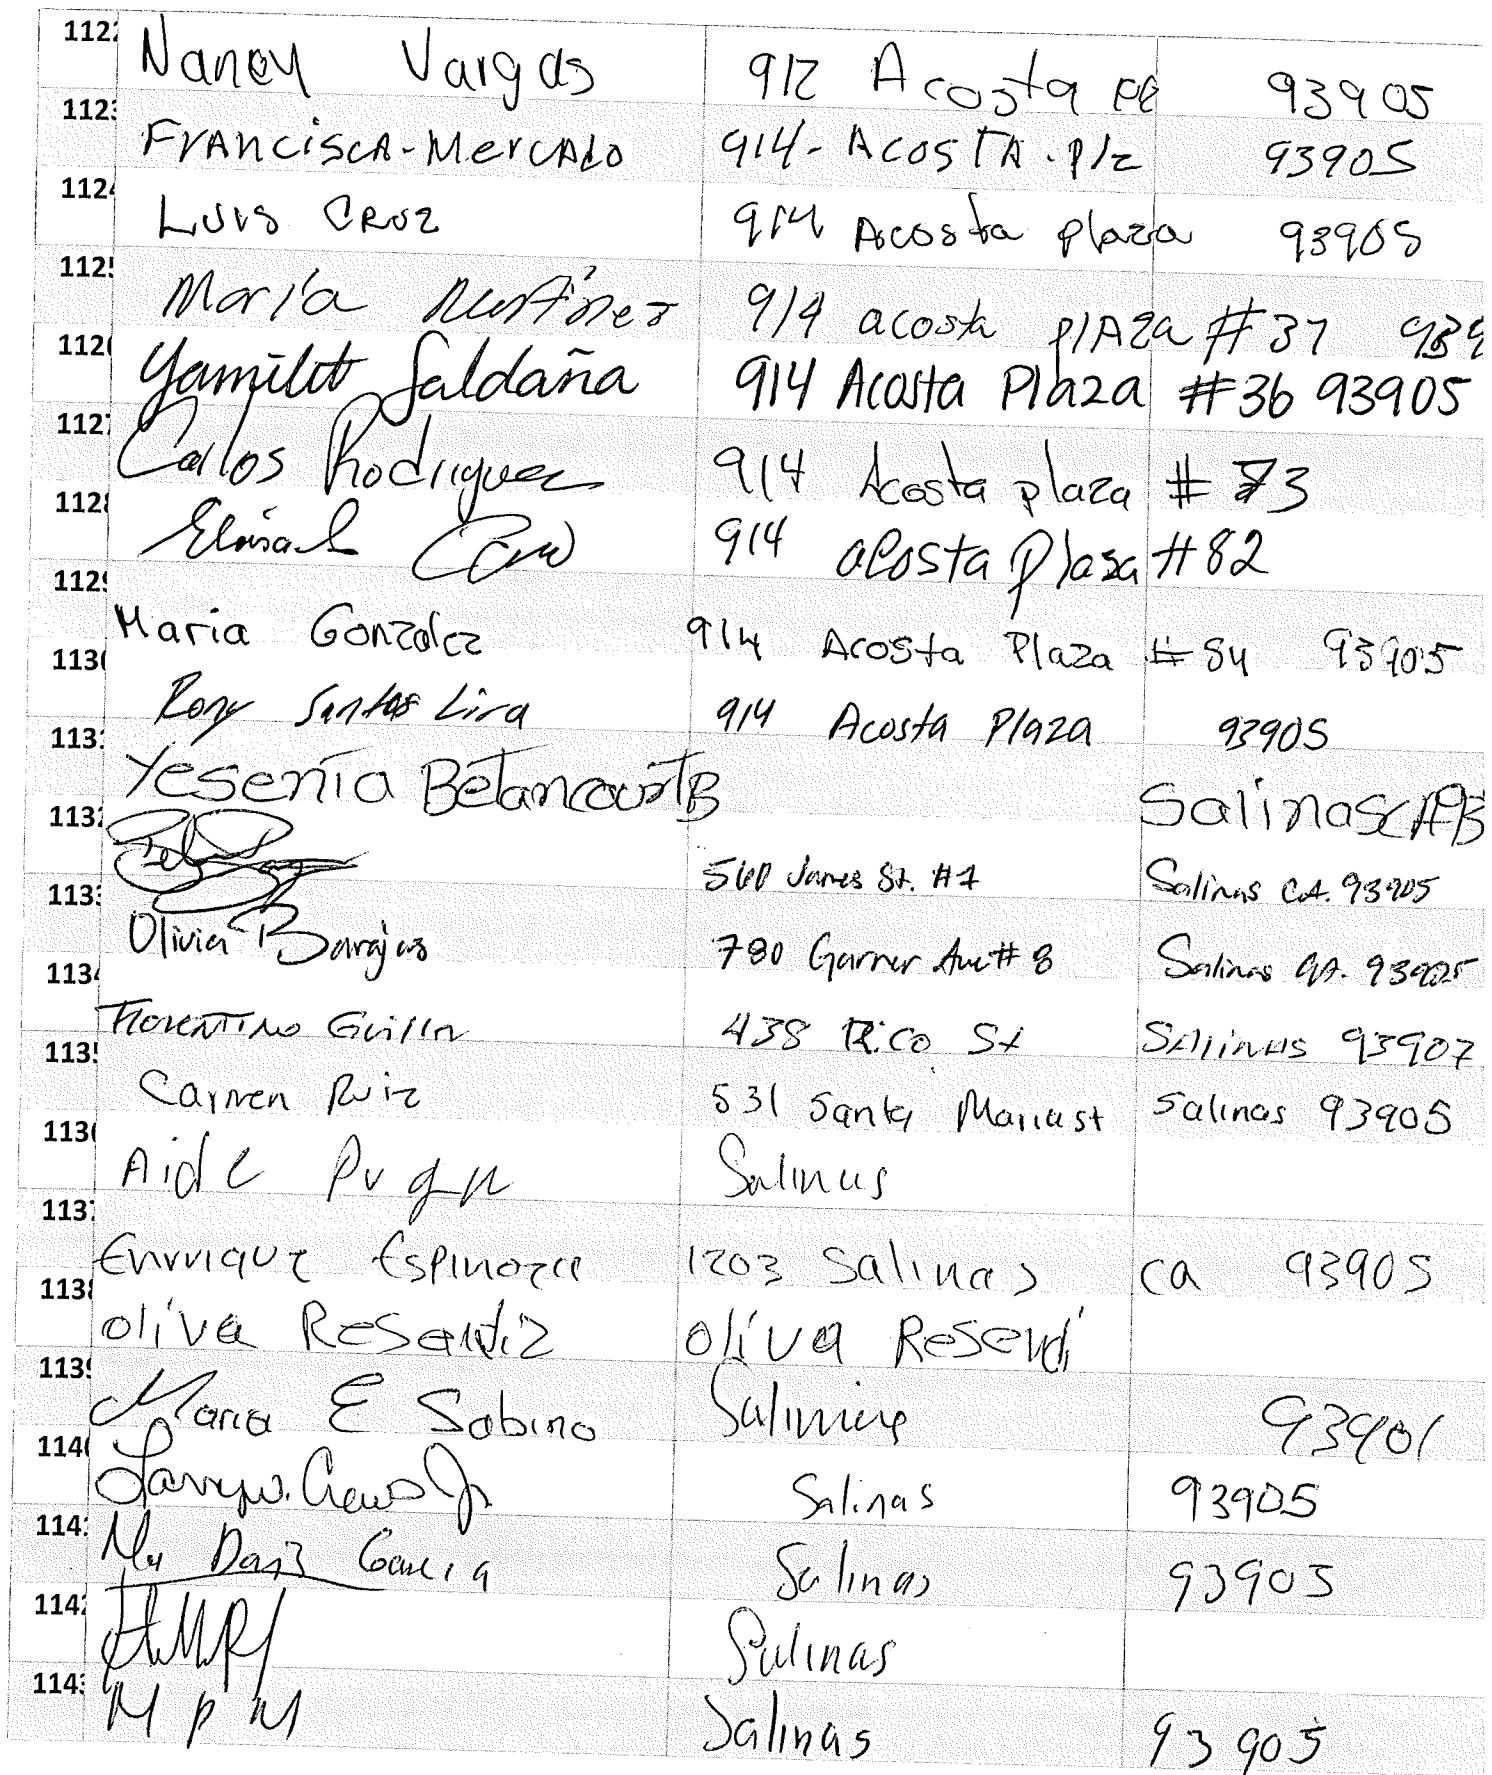 1122 Nancy Vargas 912 Acosta 93905
1123 FrANciscA-MercAdo 914- ACOSTA. Plz 93905
1124 LUIS CRUZ 914 Acosta plaza 93905
1125 María Martínez 914 acosta plAZa #37 939
1126 Yamilet Saldaña 914 Acosta Plaza #36 93905
1127 Carlos Rodriguez 914 Acosta plaza # 73
1128 914 acosta plasa #82
1129 Maria Gonzalez 914 Acosta Plaza #84 93905
1130 Rony Santos Lira 914 Acosta Plaza 93905
1131 Yesenia Betancourt B Salinas CA 93
1132 560 James St. #1 Salinas CA. 93905
1133 Olivia Barajas 780 Garner Ave # 8 Salinas CA. 93905
1134 Florentino Guillen 438 Rico St Salinas 93907
1135 Carmen Ruiz 531 Santa Maria st Salinas 93905
1136 Aide Salinas
1137 Enrrique Espinoza 1203 Salinas ca 93905
1138 oliva Resendiz oliva Resendi
1139 Maria E Sabino Salinas 93901
1140 Larry W. Crews Jr. Salinas 93905
1141 Garcia Salinas 93905
1142 Salinas
1143 M P M Salinas 93905